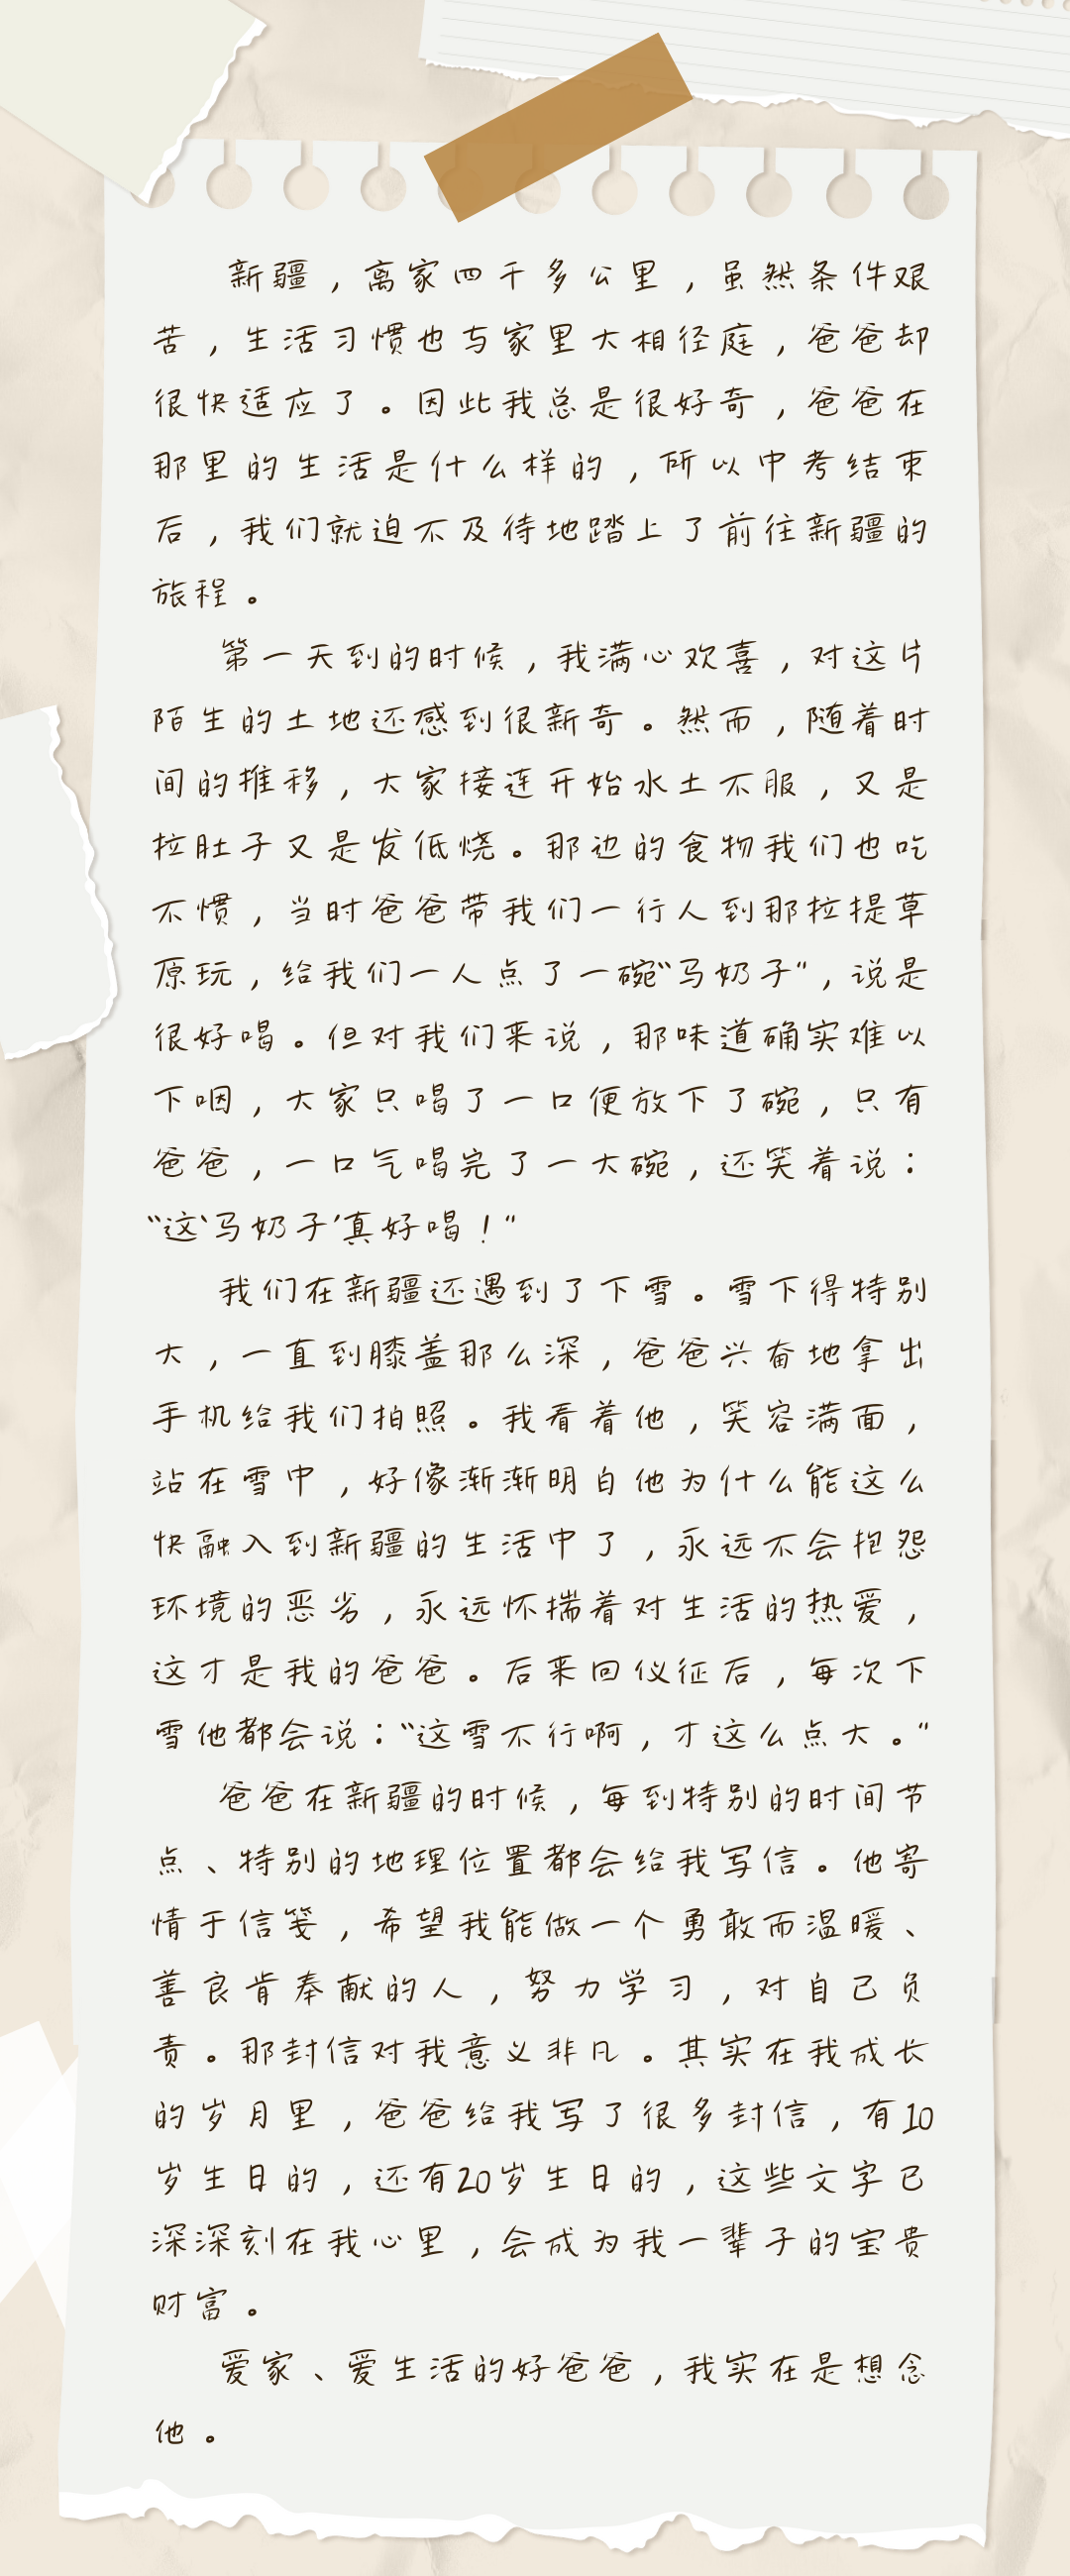 新疆，离家四千多公里，虽然条件艰
苦，生活习惯也与家里大相径庭，爸爸却
很快适应了。因此我总是很好奇，爸爸在
那里的生活是什么样的，所以中考结束
后，我们就迫不及待地踏上了前往新疆的
旅程。
第一天到的时候，我满心欢喜，对这片
陌生的土地还感到很新奇。然而，随着时
间的推移，大家接连开始水土不服，又是
拉肚子又是发低烧。那边的食物我们也吃
不惯，当时爸爸带我们一行人到那拉提草
原玩，给我们一人点了一碗“马奶子”，说是
很好喝。但对我们来说，那味道确实难以
下咽，大家只喝了一口便放下了碗，只有
爸爸，一口气喝完了一大碗，还笑着说：
“这‘马奶子’真好喝！”
我们在新疆还遇到了下雪。雪下得特别
大，一直到膝盖那么深，爸爸兴奋地拿出
手机给我们拍照。我看着他，笑容满面，
站在雪中，好像渐渐明白他为什么能这么
快融入到新疆的生活中了，永远不会抱怨
环境的恶劣，永远怀揣着对生活的热爱，
这才是我的爸爸。后来回仪征后，每次下
雪他都会说：“这雪不行啊，才这么点大。”
爸爸在新疆的时候，每到特别的时间节
点、特别的地理位置都会给我写信。他寄
情于信笺，希望我能做一个勇敢而温暖、
善良肯奉献的人，努力学习，对自己负
责。那封信对我意义非凡。其实在我成长
的岁月里，爸爸给我写了很多封信，有10
岁生日的，还有20岁生日的，这些文字已
深深刻在我心里，会成为我一辈子的宝贵
财富。
爱家、爱生活的好爸爸，我实在是想念
他。